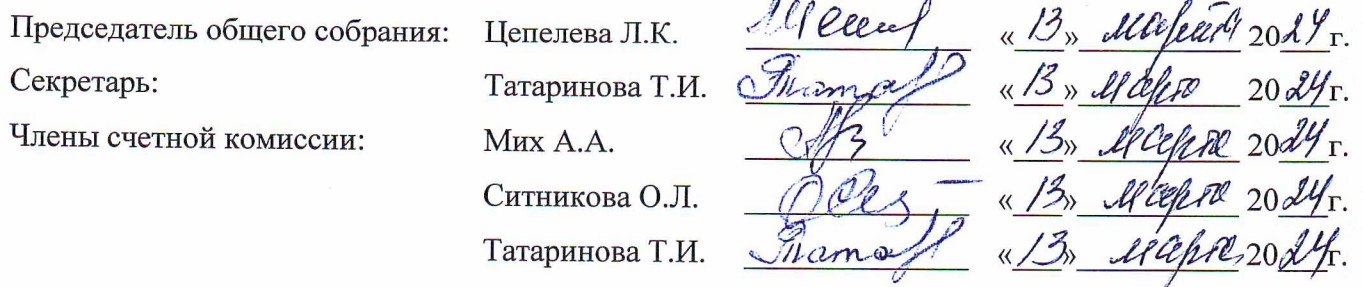 Председатель общего собрания: Цепелева Л.К. «13» марта 2024г.
Секретарь: Татаринова Т.И. «13» марта 2024г.
Члены счетной комиссии: Мих А.А. «13» марта 2024г.
Ситникова О.Л. «13» марта 2024г.
Татаринова Т.И. «13» марта 2024г.